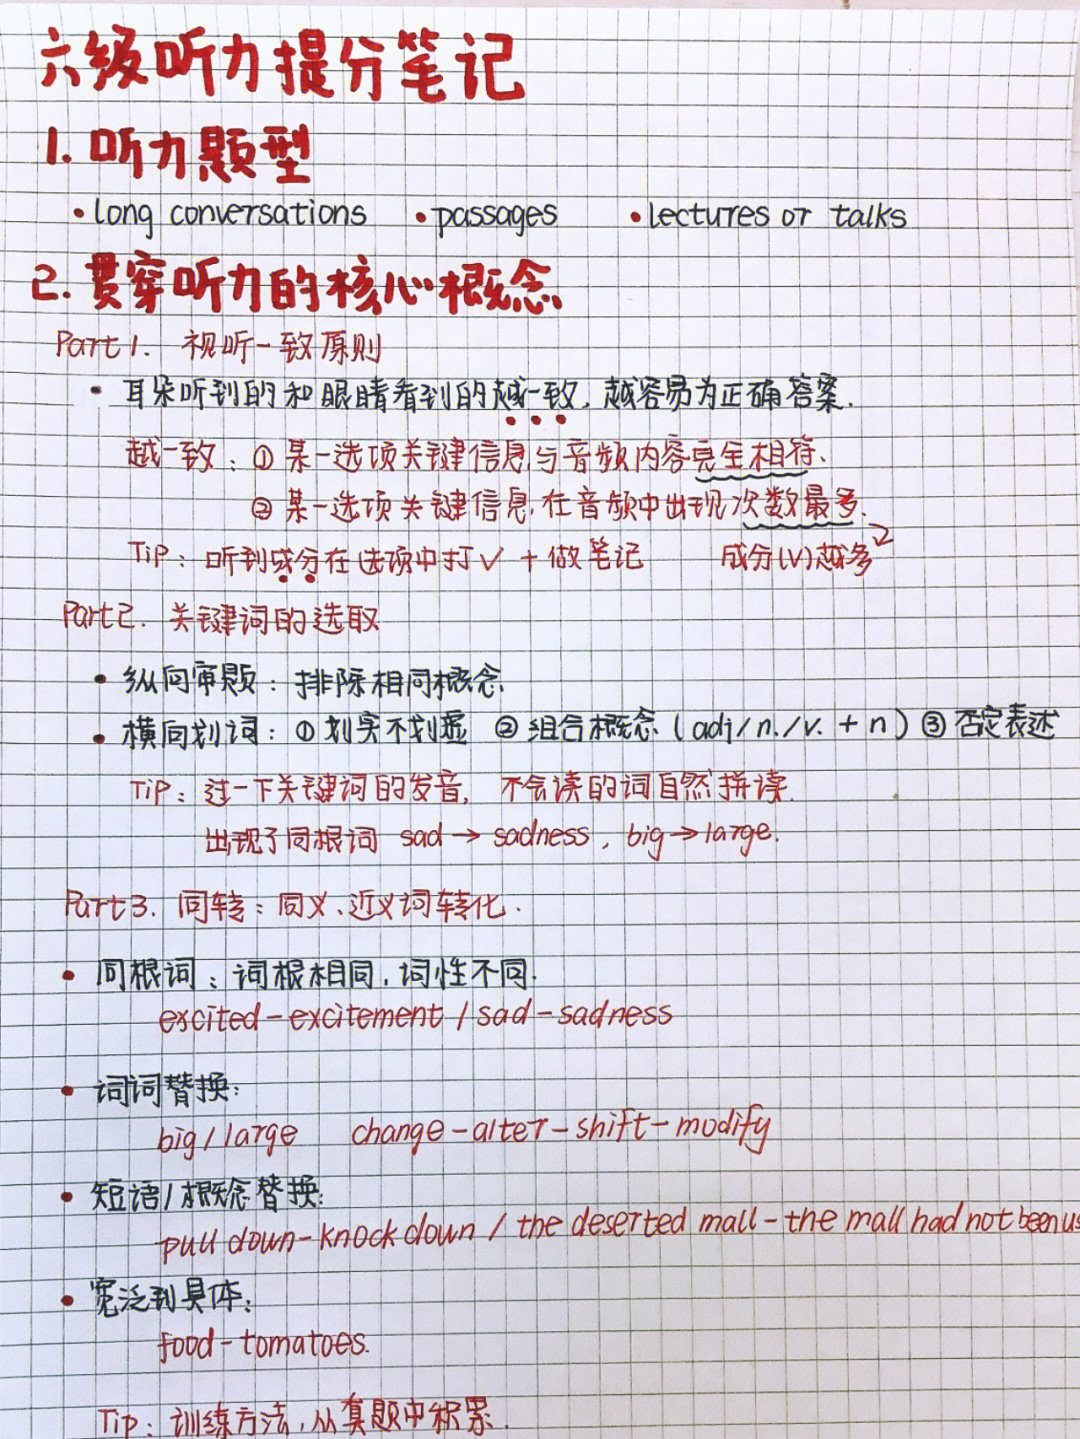 六级听力提分笔记
1. 听力题型
• long conversations • passages • lectures or talks
2. 贯穿听力的核心概念
Part 1. 视听一致原则
• 耳朵听到的和眼睛看到的越一致, 越容易为正确答案.
越一致: ① 某一选项关键信息与音频内容完全相符.
② 某一选项关键信息在音频中出现次数最多.
Tip: 听到成分在选项中打✓ + 做笔记 成分(✓)越多
Part 2. 关键词的选取
• 纵向审题: 排除相同概念
• 横向划词: ① 划实不划虚 ② 组合概念 (adj/n./v. + n) ③ 否定表述
Tip: 过一下关键词的发音, 不会读的词自然拼读.
出现了同根词 sad → sadness, big → large.
Part 3. 同转: 同义、近义词转化.
• 同根词: 词根相同, 词性不同.
excited-excitement / sad-sadness
• 词词替换:
big/large change-alter-shift-modify
• 短语/概念替换:
pull down-knock down / the deserted mall-the mall had not been us
• 宽泛到具体:
food-tomatoes.
Tip: 训练方法, 从真题中积累.